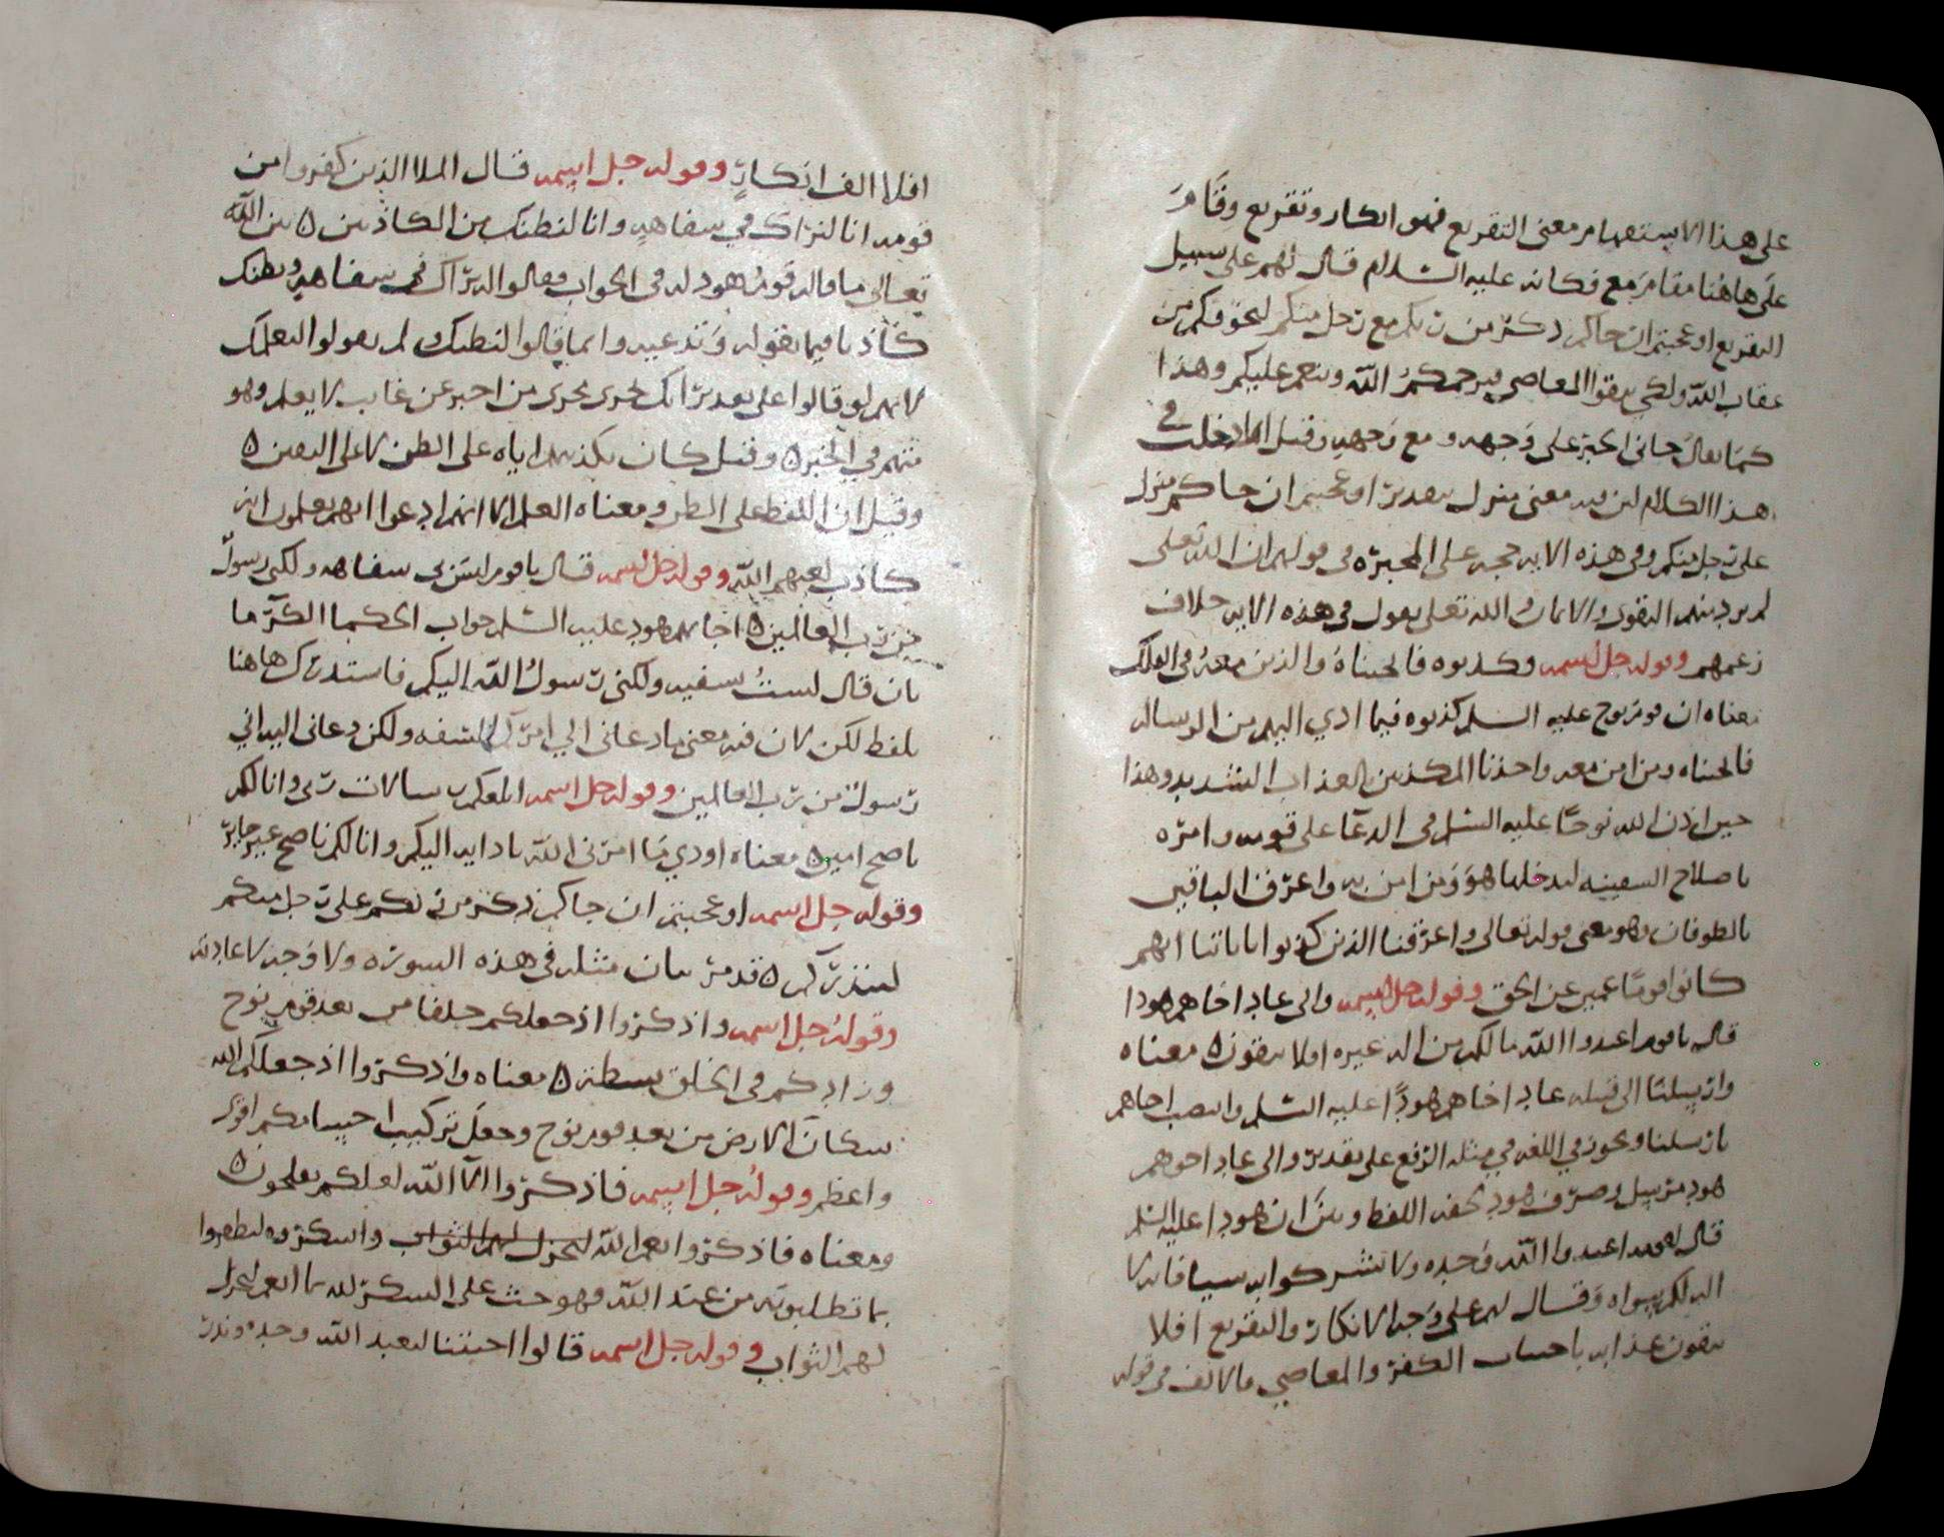 على هذا الاستفهام معنى التقريع فهو انكار وتقريع وقام
على هاهنا مقام مع فكانه عليه السلام قال لهم على سبيل
التقريع اوعجبتم ان جاكم ذكر من ربكم مع رجل منكم ليخوفكم من
عقاب الله ولكي يتقوا المعاصي فيرحمكم الله وينعم عليكم وهذا
كما يقال جانى الخبر على وجهه ومع وجهه وقيل انما دخلت في
هذا الكلام لان فيه معنى منزل بتقدير اوعجبتم ان جاكم منزل
على رجل منكم وفى هذه الايه حجه على المجبره في قولهم ان الله تعلى
لم يرد منهم التقوى والايمان والله تعلى يقول في هذه الايه خلاف
زعمهم وقوله جل اسمه وكذبوه فانجيناه والذين معه في الفلك
معناه ان قوم نوح عليه السلم كذبوه فيما ادي اليهم من الرساله
فانجيناه ومن امن معه واخذنا المكذبين بالعذاب الشديد وهذا
حين اذن الله نوحًا عليه السلم في الدعا على قومه وامره
باصلاح السفينه ليدخلها هو ومن امن به واغرق الباقين
بالطوفان وهو معنى قوله تعالى واغرقنا الذين كذبوا باياتنا انهم
كانوا قومًا عمين عن الحق وقوله جل اسمه والى عاد اخاهم هودا
قال يا قوم اعبدوا الله ما لكم من اله غيره افلا تتقون ۞ معناه
وارسلنا الى قبيله عاد اخاهم هودًا عليه السلم وانتصب اخاهم
بارسلنا ويجوز في اللغه في مثله الرفع على تقدير والى عاد اخوهم
هود مرسل وصرف هود لخفه اللفظ وبين ان هودا عليه السلم
قال لقومه اعبدوا الله وحده ولا تشركوا به شيا فانه لا
اله لكم سواه وقال لهم على وجه الانكار والتقريع افلا
تتقون عذابه باجتناب الكفر والمعاصي فالالف في قوله
افلا الف انكارٍ وقوله جل اسمه قال الملا الذين كفروا من
قومه انا لنراك في سفاهه وانا لنظنك من الكاذبين ۞ بين الله
تعالى ما قاله قوم هود له في الجواب فقالوا لنراك في سفاهه ونظنك
كاذبا فيما تقوله وتدعيه وانما قالوا لنظنك ولم يقولوا لنعلمك
لانهم لو قالوا على تقدير انك تجرى مجرى من اخبر عن غايب لا يعلم وهو
متهم في الخبر ۞ وقيل كان تكذيبهم اياه على الظن لا على اليقين ۞
وقيل ان اللفظ على الظن ومعناه العلم الا انهم ادعوا انهم يعلمون انه
كاذب لعنهم الله وقوله جل اسمه قال يا قوم ليس بى سفاهه ولكنى رسول
من رب العالمين ۞ اجابهم هود عليه السلم جواب الحكما الكرما
بان قال لستُ سفيه ولكنى رسولُ الله اليكم فاستدرك هاهنا
بلفظ لكن لان فيه معنى ما دعانى الي امركم السفه ولكن دعانى اليه انى
رسول من رب العالمين وقوله جل اسمه ابلغكم رسالات ربى وانا لكم
ناصح امين ۞ معناه اودي ما امرنى الله بادايه اليكم وانا لكم ناصح غير جاير
وقوله جل اسمه اوعجبتم ان جاكم ذكر من ربكم على رجل منكم
لينذركم ۞ قد مر بيان مثله في هذه السوره ولا وجه لاعادته
وقوله جل اسمه واذكروا اذ جعلكم خلفا من بعد قوم نوح
وزادكم في الخلق بسطة ۞ معناه واذكروا اذ جعلكم الله
سكان الارض من بعد قوم نوح وجعل تركيب اجسامكم اقوى
واعظم وقوله جل اسمه فاذكروا الا الله لعلكم تفلحون ۞
ومعناه فاذكروا نعم الله ليجزل لهم الثواب واشكروه لتظفروا
بما تطلبونه من عند الله فهو حث على الشكر لله بما انعم ليجزل
لهم الثواب وقوله جل اسمه قالوا اجيتنا لنعبد الله وحده ونذر